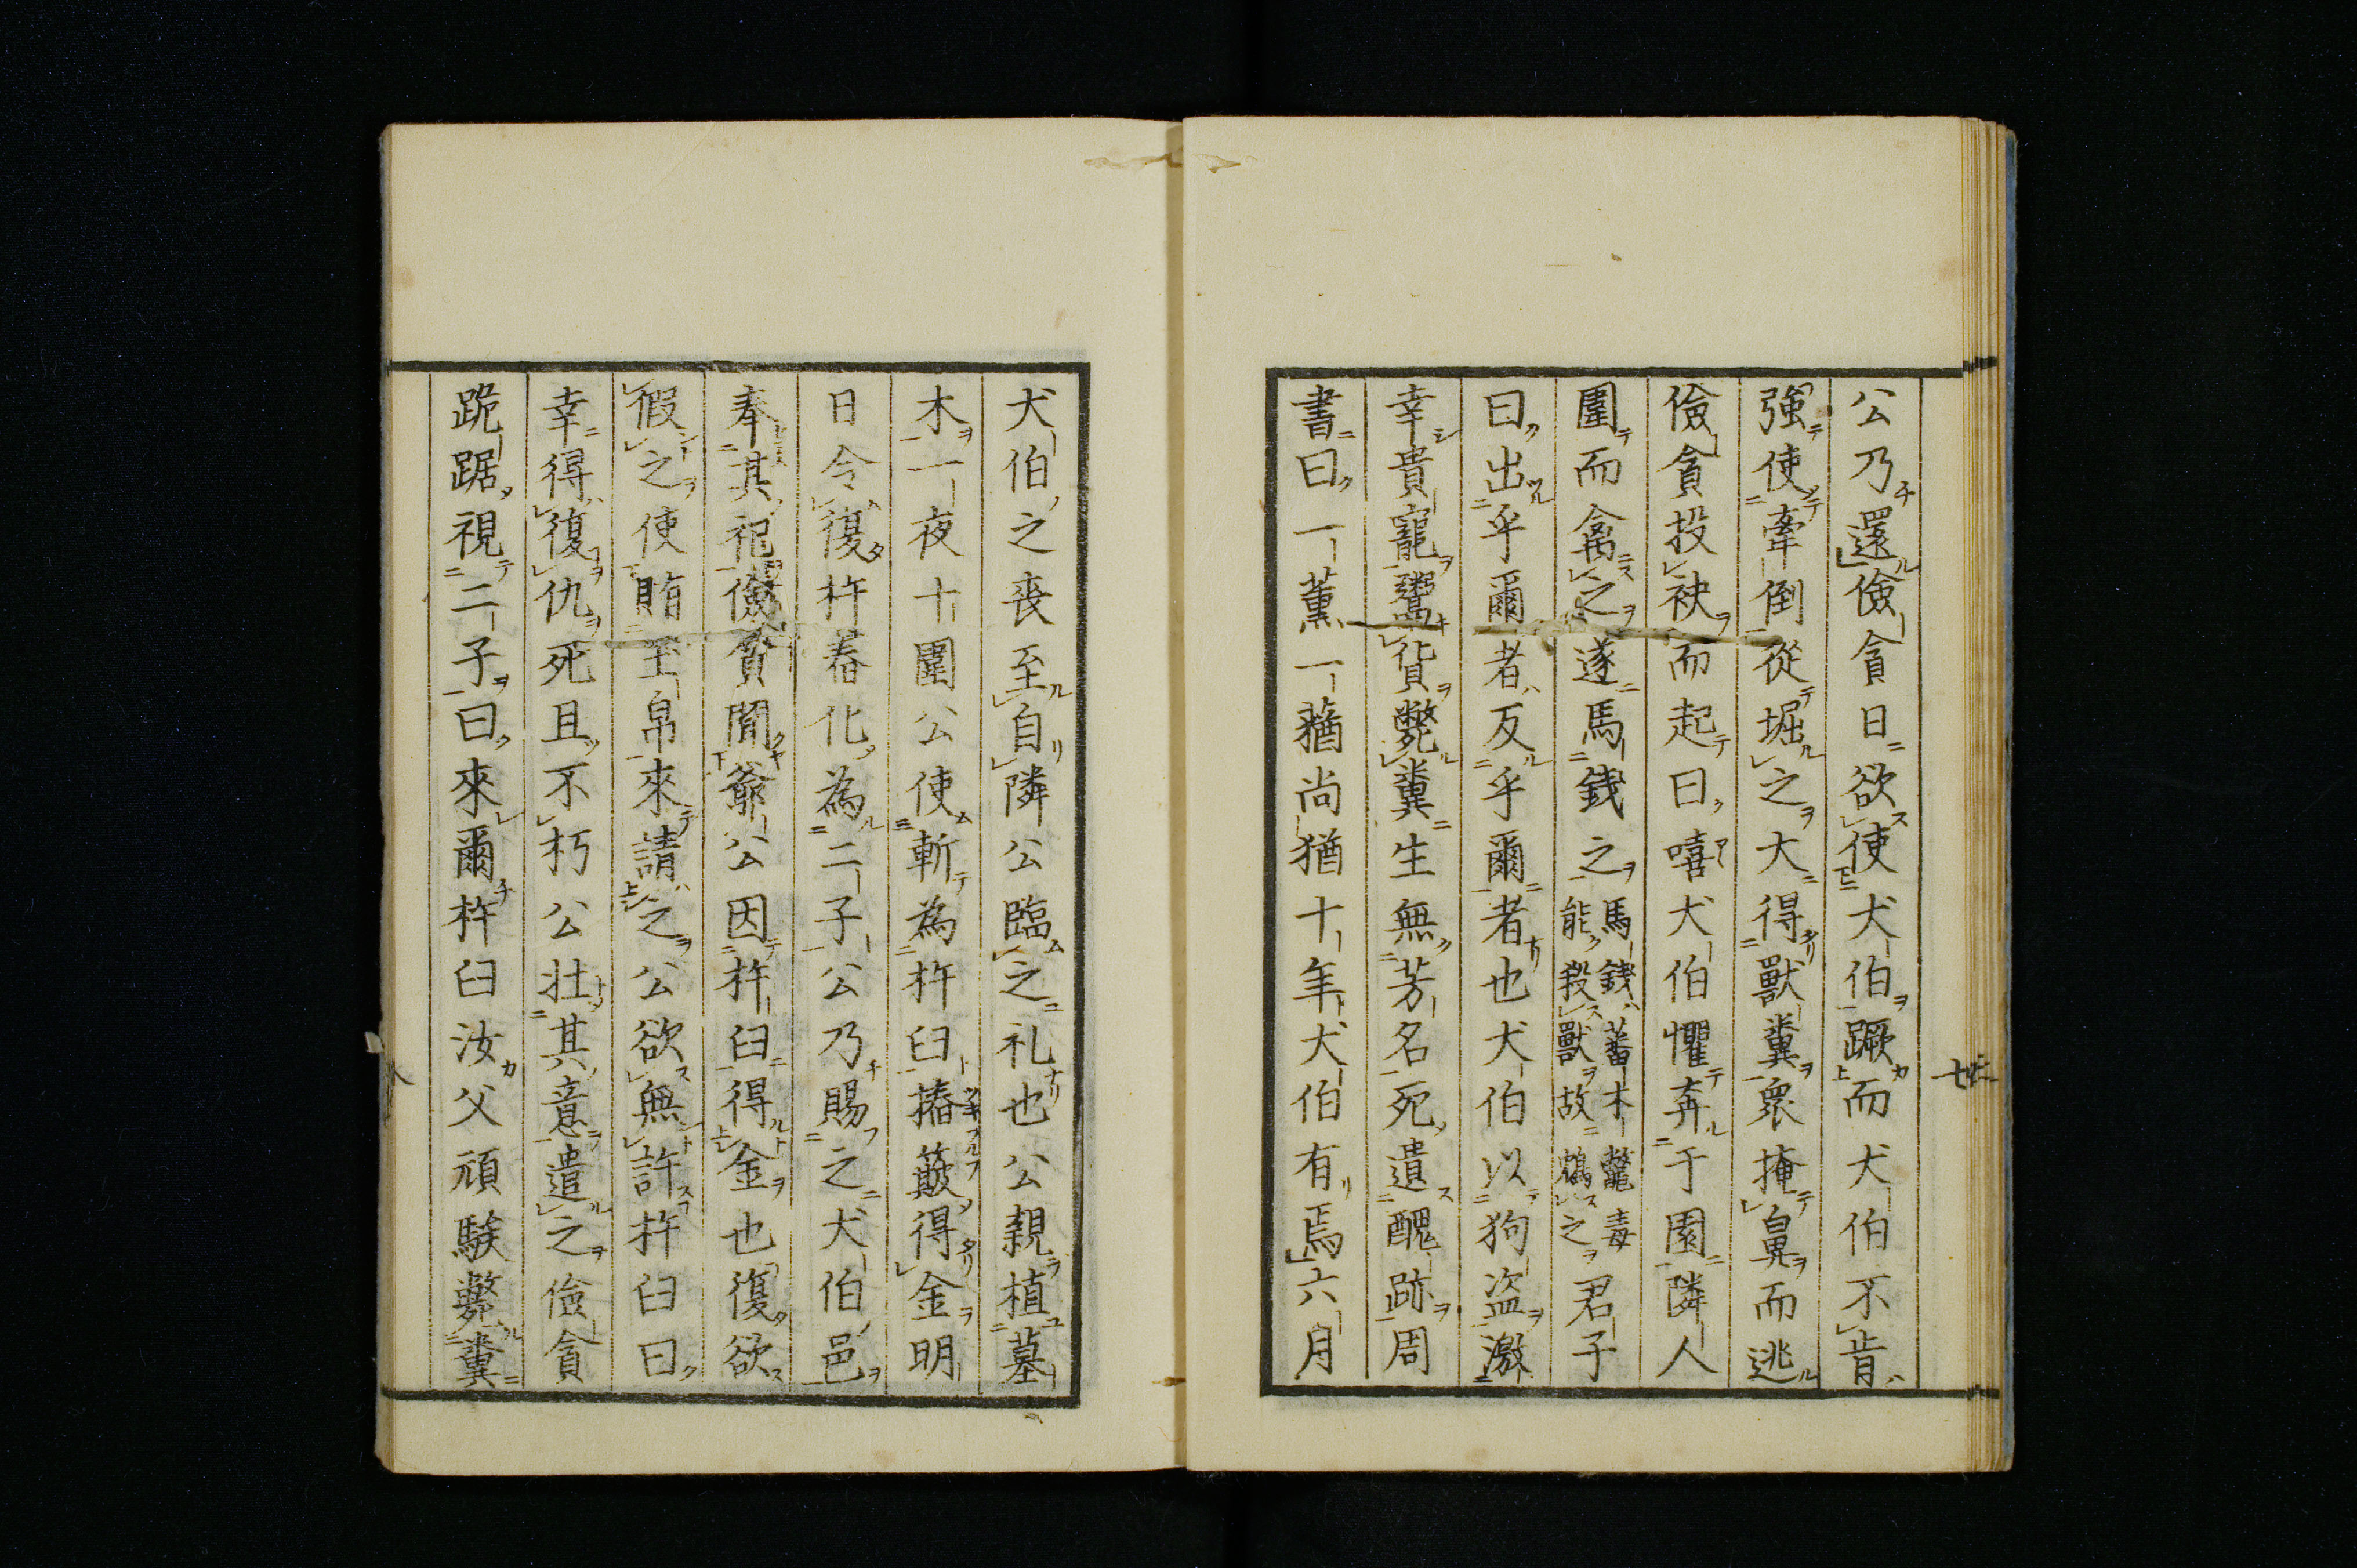 公乃還儉貪日欲使犬伯蹶而犬伯不肯
強使牽倒從堀之大得獸糞衆掩鼻而逃
儉貪投袂而起曰嘻犬伯懼奔于園隣人
圍而禽之遂馬錢之馬錢蕃木鼈毒能殺獸故鴆之君子
曰出乎爾者反乎爾者也犬伯以狗盗激
幸貴寵鬻貨斃糞生無芳名死遺醜跡周
書曰一薫一蕕尚猶十年犬伯有焉六月
犬伯之喪至自隣公臨之礼也公親植墓
木一夜十圍公使斬為杵臼摏簸得金明
日令復杵舂化為二子公乃賜之犬伯邑
奉其祀儉貪聞爺公因杵臼得金也復欲
假之使賄玉帛來請之公欲無許杵臼曰
幸得復仇死且不朽公壮其意遣之儉貪
跪踞視二子曰來爾杵臼汝父頑騃斃糞